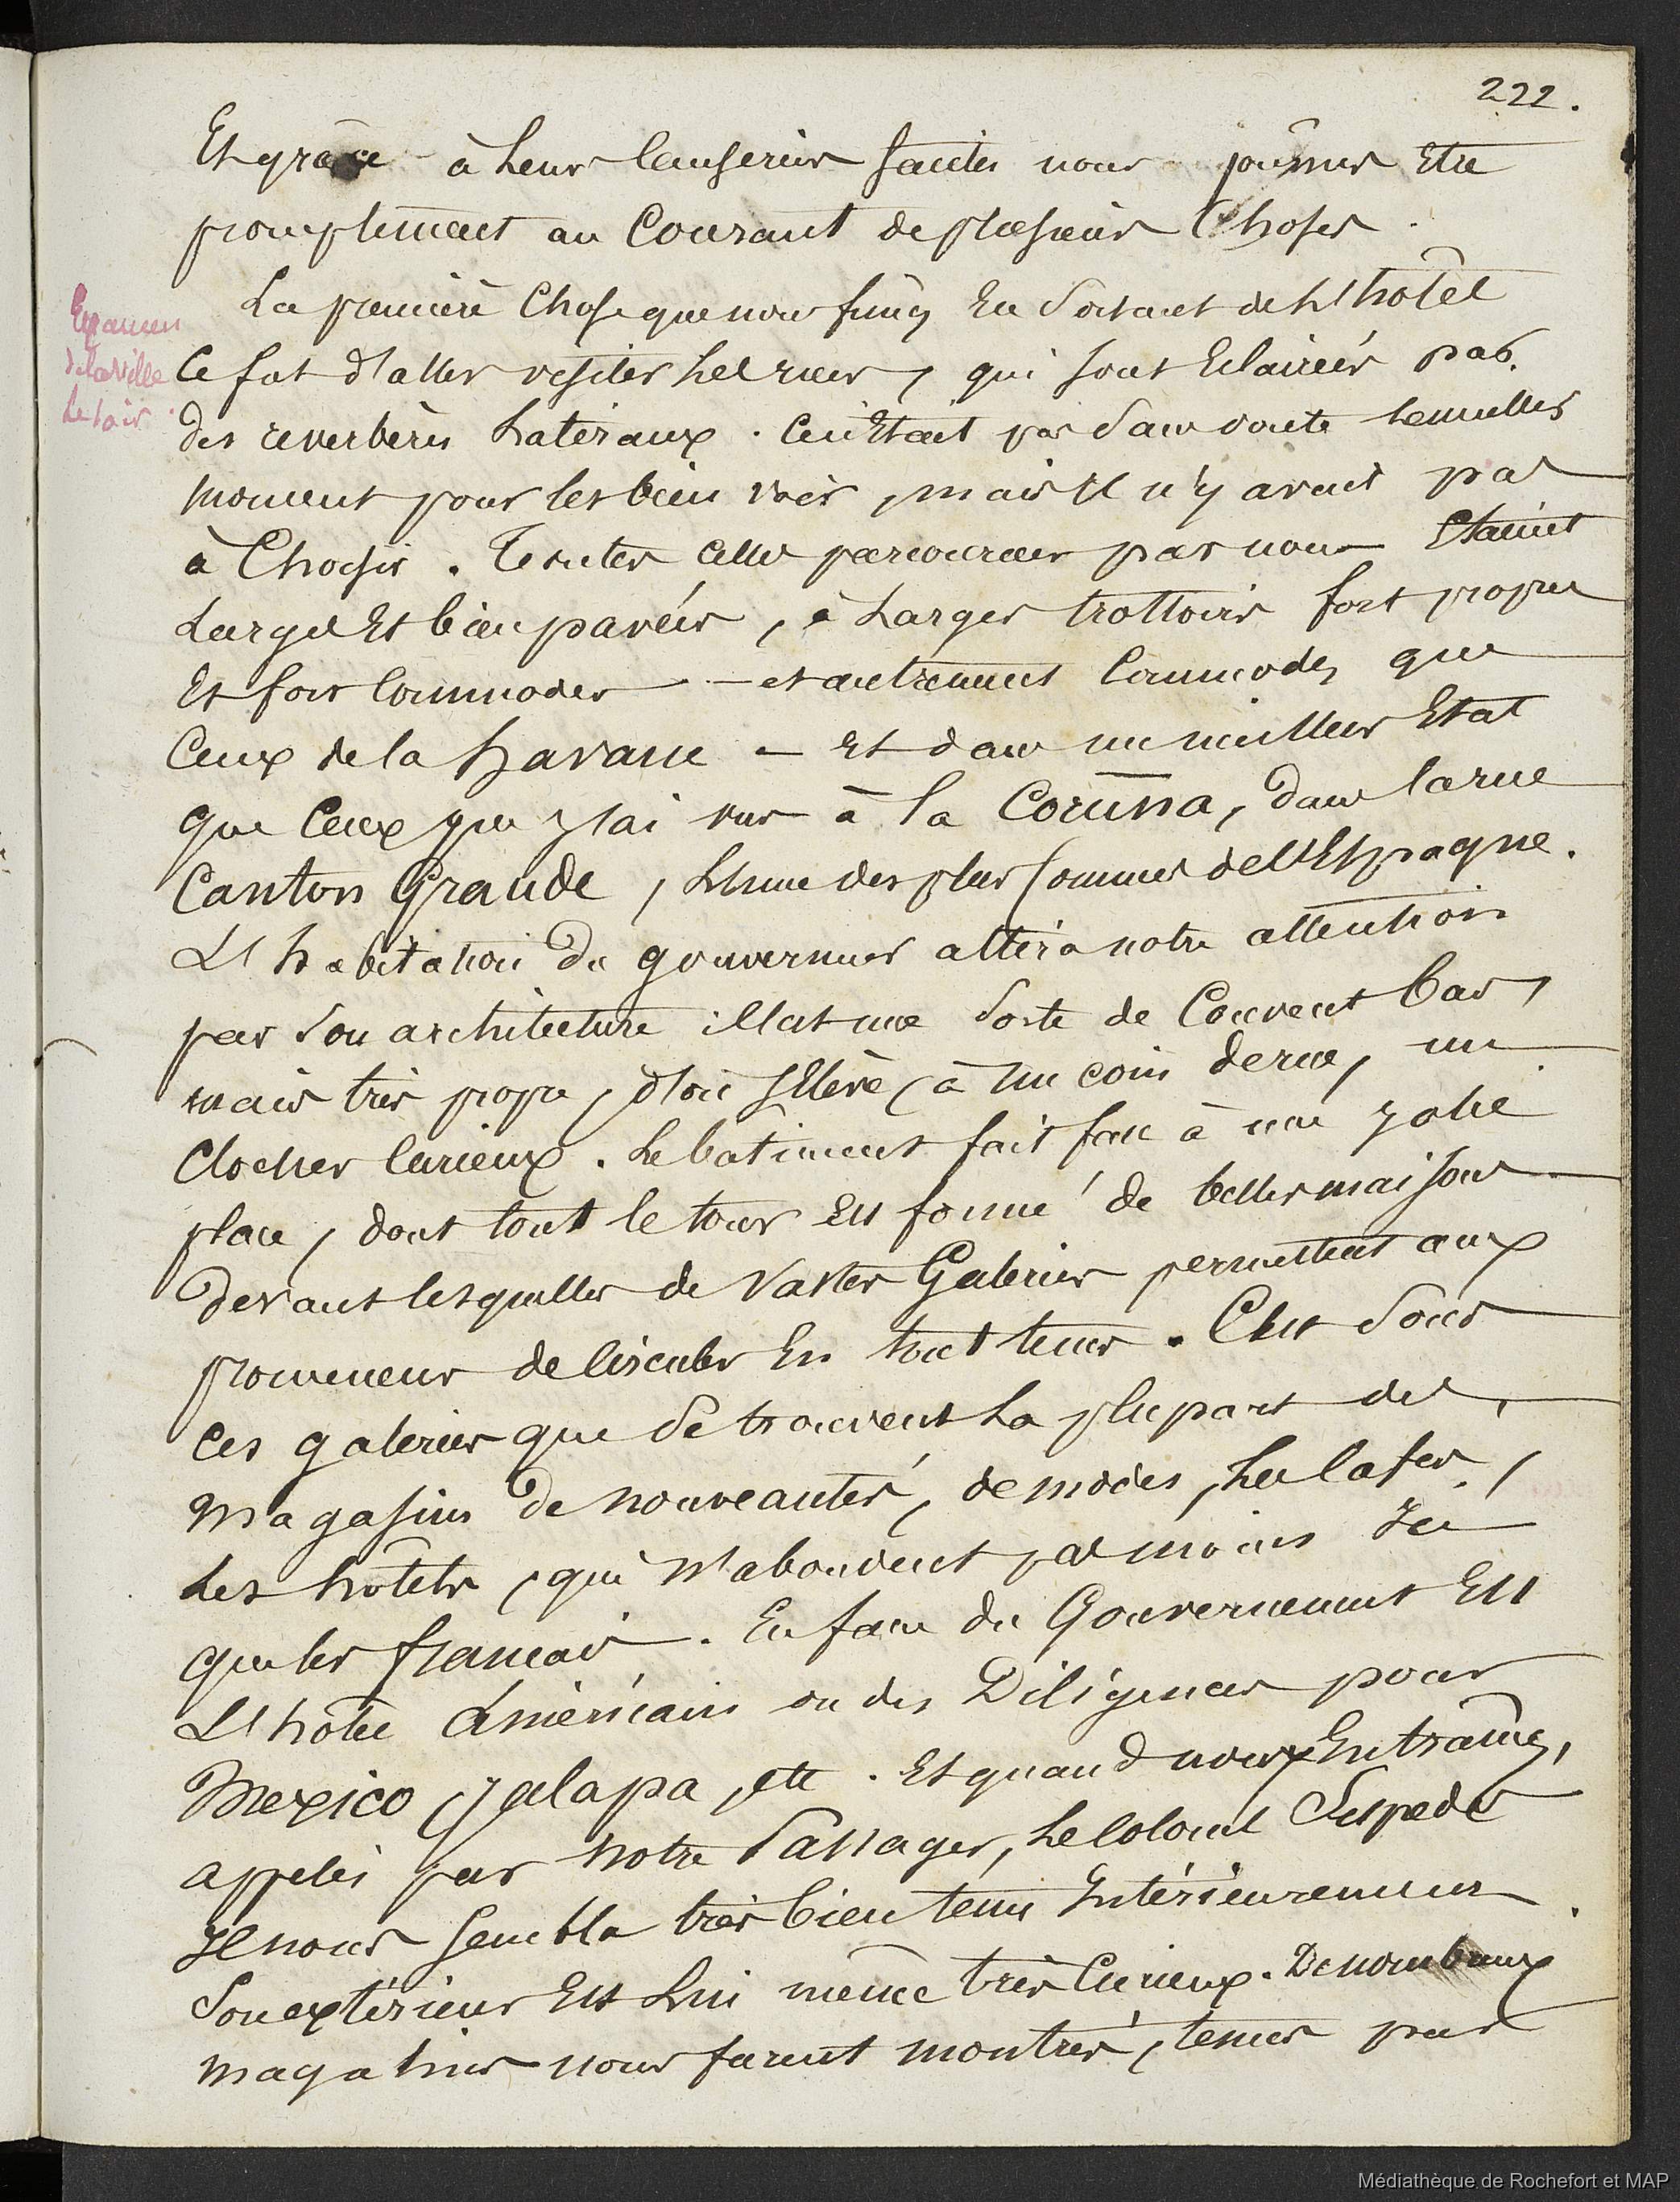 222.
Et grâce à leurs causeries faciles nous pûmes Etre
promptement au Courant de plusieurs Choses.
La première Chose que nous fimes En Sortant de l'hôtel
Examen
de la ville
le soir.
Ce fut d'aller visiter les rues, qui sont Eclairées par
des reverbères latéraux. Ce n'Etait pas Sans doute le meilleur
moment pour les bien voir, mais il n'y avait pas
à Choisir. Toutes celles parcourues par nous Etaient
larges Et bien pavées, à larges trottoirs fort propres
Et fort Commodes — et autrement Commodes que
Ceux de la havane — Et dans un meilleur Etat
que Ceux que j'ai vus à la Coruña, dans la rue
Canton Grande, l'une des plus connues de l'Espagne.
L'habitation du gouverneur attira notre attention
par Son architecture : il est une Sorte de Couvent bas,
mais très propre, d'où s'Elève, à un coin de rue, un
Clocher Curieux. Le batiment fait face à une jolie
place, dont tout le tour Est formé de belles maisons
devant lesquelles de vastes Galeries permettent aux
promeneurs de circuler En tout tems. C'est Sous
Ces galeries que Se trouvent la plupart des
magasins de nouveautés, de modes, les cafés,
les hôtels, qui n'abondent pas moins ici
que les français. En face du Gouvernement Est
L'hôtel Américain ou des Diligences pour
Mexico, jalapa, etc. Et quand nous y Entrâmes,
appelés par notre Passager, le Colonel
il nous sembla très bien tenu Intérieurement.
Son extérieur Est lui même très Curieux. De nombreux
magasins nous furent montrés, tenus par
Médiathèque de Rochefort et MAP